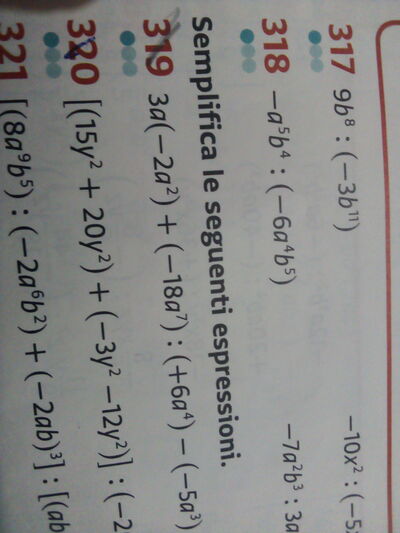 317 9b⁸ : (−3b¹¹) −10x² : (−5
318 −a⁵b⁴ : (−6a⁴b⁵) −7a²b³ : 3a
Semplifica le seguenti espressioni.
319 3a(−2a²) + (−18a⁷) : (+6a⁴) − (−5a³)
320 [(15y² + 20y²) + (−3y² − 12y²)] : (−2
321 [(8a⁹b⁵) : (−2a⁶b²) + (−2ab)³] : [(ab